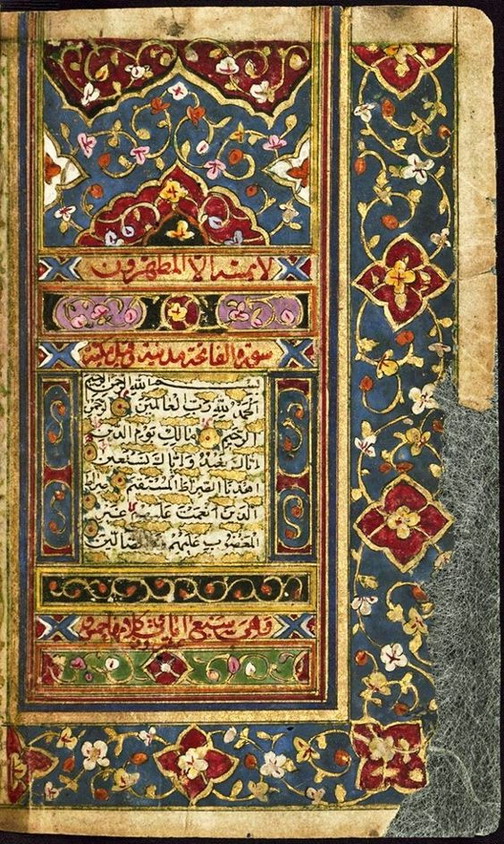 لا يمسه الا المطهرون
سورة الفاتحة مدنية وقيل مكية
بسم الله الرحمن الرحيم
الحمد لله رب العالمين الرحمن
الرحيم مالك يوم الدين
اياك نعبد واياك نستعين
اهدنا الصراط المستقيم صراط
الذين انعمت عليهم غير
المغضوب عليهم ولا الضالين
وهى سبع ايات